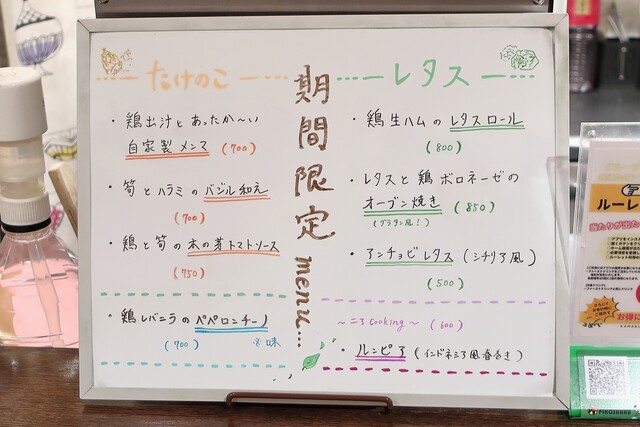 期間限定 menu...
たけのこ
・鶏出汁とあったか〜い
自家製メンマ (700)
・筍とハラミのバジル和え
(700)
・鶏と筍の木の芽トマトソース
(750)
・鶏レバニラのペペロンチーノ
(700)
レタス
・鶏生ハムのレタスロール
(800)
・レタスと鶏ボロネーゼの
オーブン焼き (850)
(グラタン風!)
・アンチョビレタス (シチリア風)
(500)
(600)
・ルンピア (インドネシア風春巻き)
ルーレ
当たりが出た
お得に